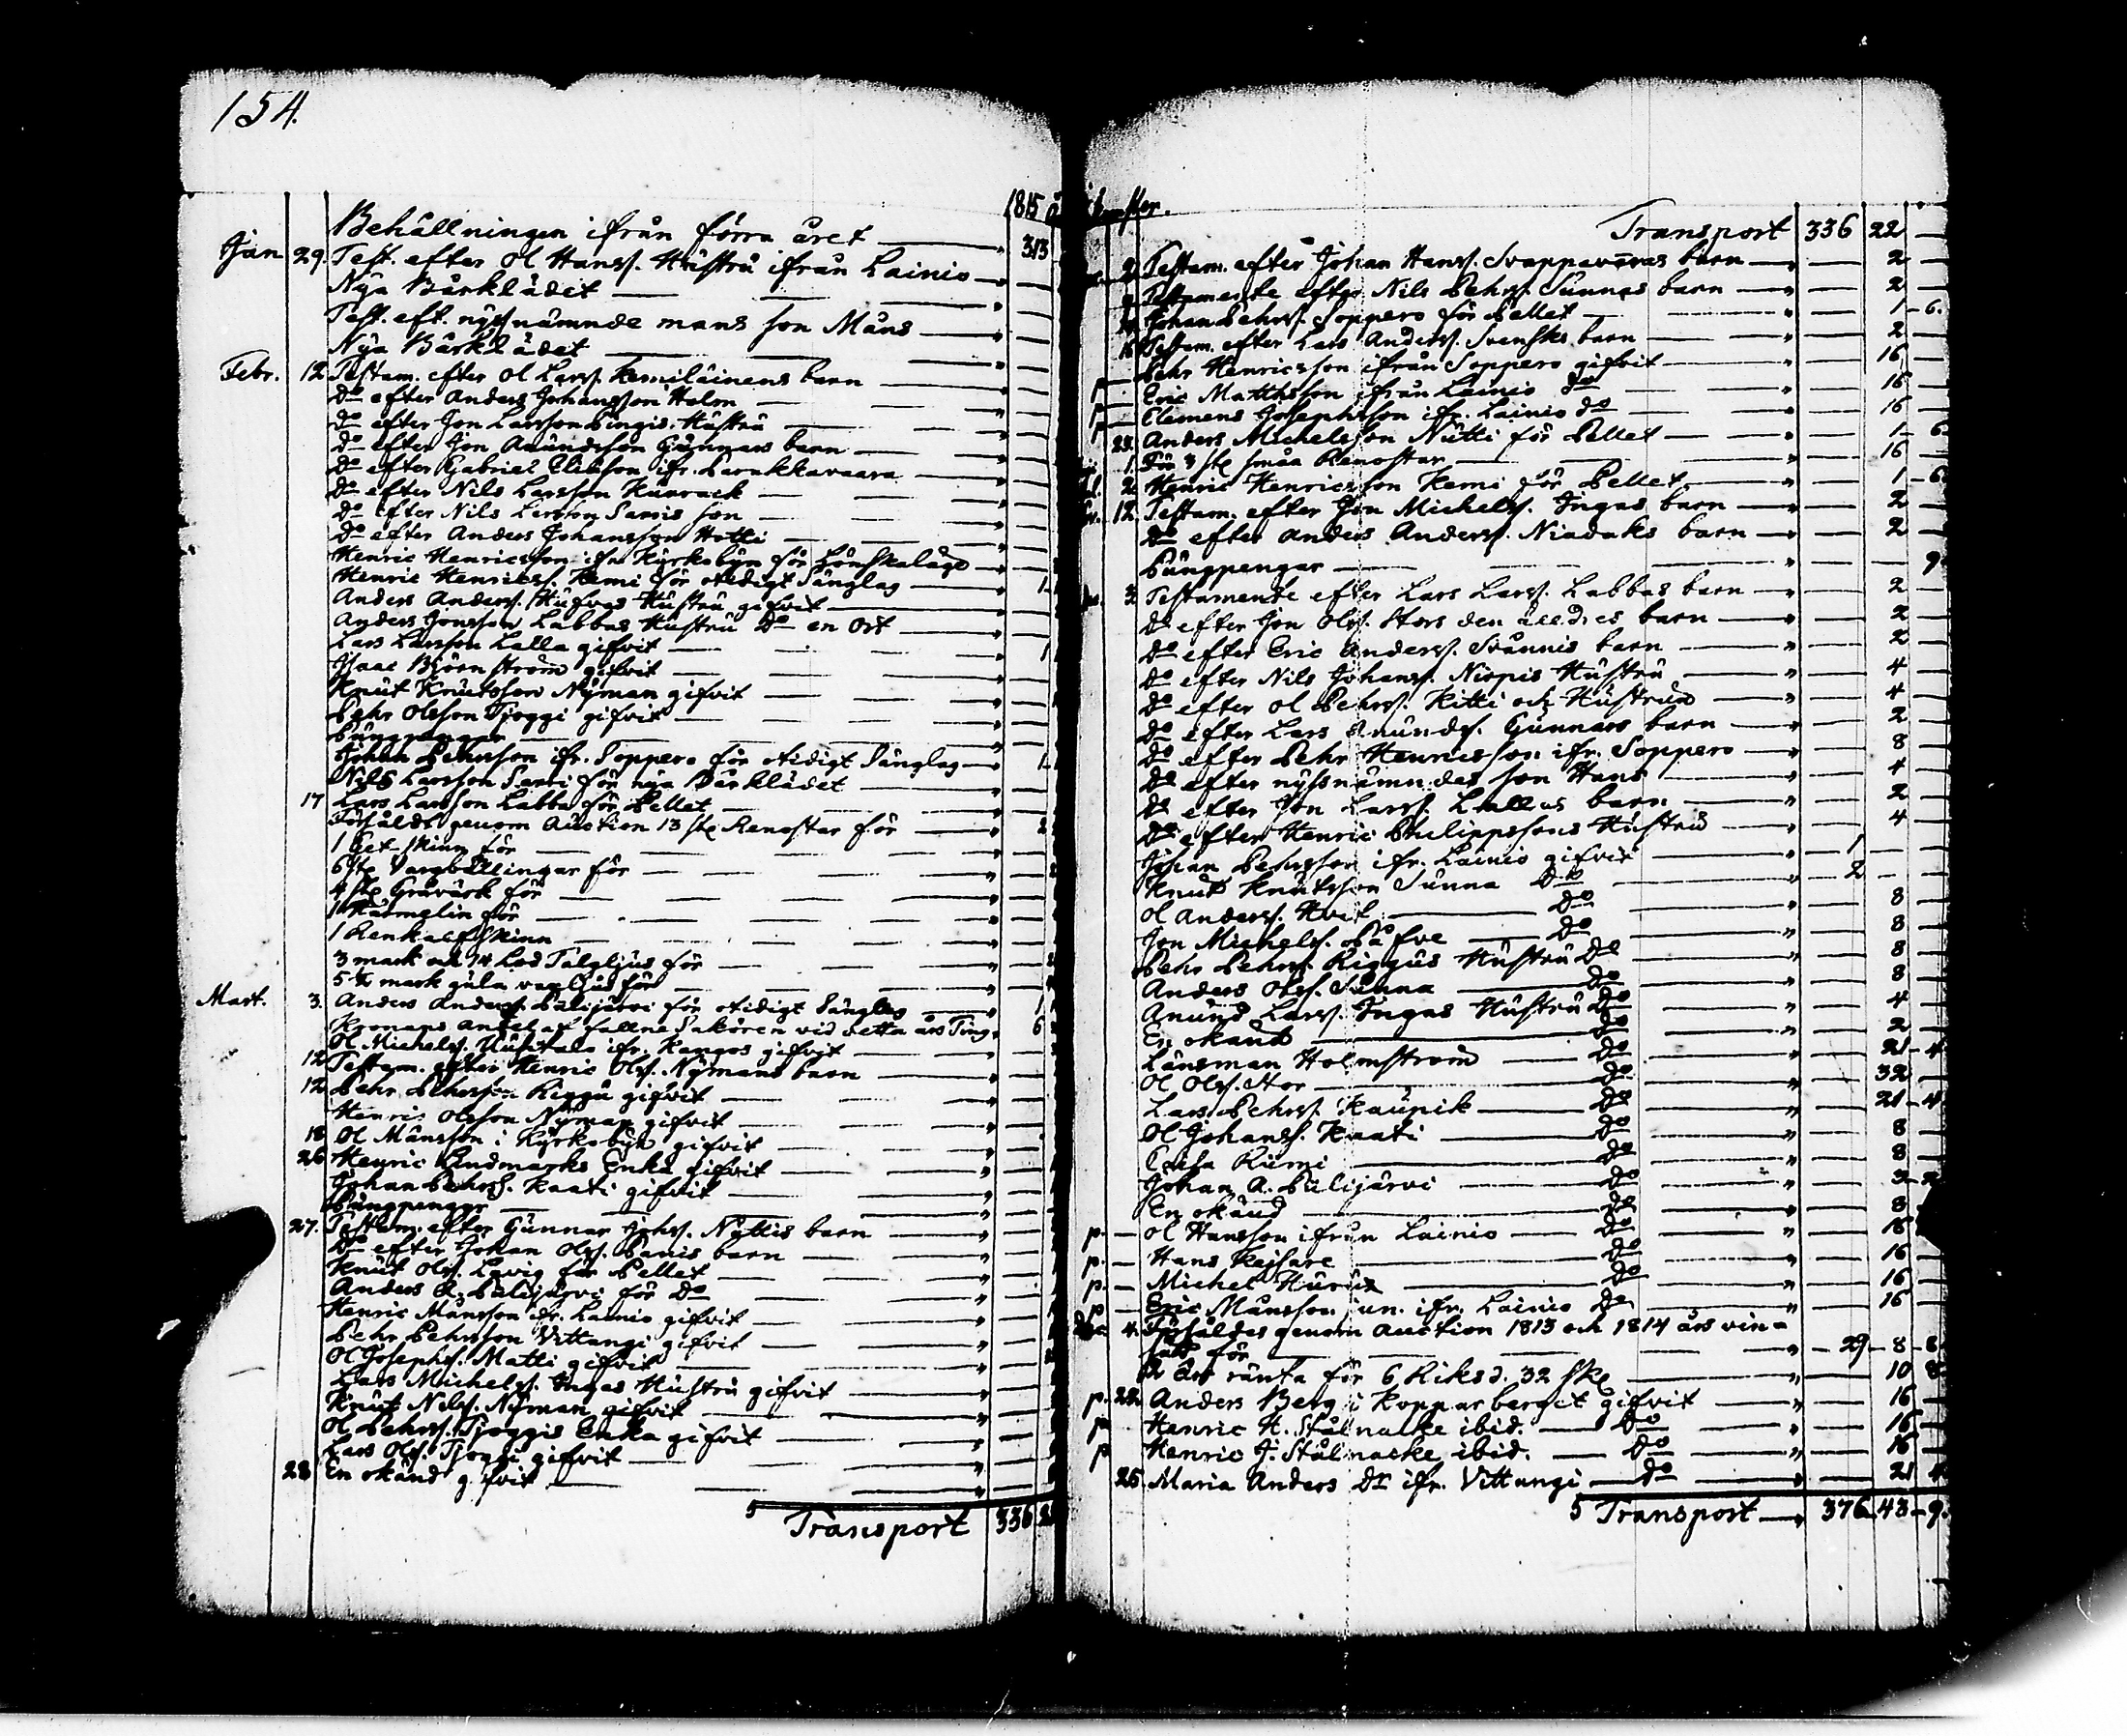 154.
1815
Behållningen ifrån förra året 313
Jan 29. Test. efter Ol Hanss. Hustru ifrån Lainio
Nya Bårklädet
Test. eft. nyssnämnde mans son Måns
Nya Bårklädet
Febr. 12 Testam. efter Ol Larss. Kemiläinens barn
Do efter Anders Johansson Holm
Do efter Jon Larsson Pingis Hustru
Do efter Jon Amundsson Gunnars barn
Do efter Gabriel Eliæson ifr. Parakkavaara
Do efter Nils Larsson
Do efter Nils Larsson Sarris son
Do efter Anders Johansson Hotti
Henric Henricsson ifr. Kyrkobyn för
Henric Henrikss. Kemi för otidigt Sänglag 1
Anders Anderss. Hustru gifvit
Anders Jonsson Labbas Hustru Do en Ort
Lars Larsson Lalla gifvit 1
Isaac Björnström gifvit
Knut Knutsson Nyman gifvit
Pehr Olsson Tjoggi gifvit
Pungpengar
Johan Pehrsson ifr. Soppero för otidigt Sänglag 1
Nils Larsson Sarri för nya Bårklädet
17 Lars Larsson Labba för Pellet
Försåldt genom Auction 13 st. Renostar för 2
1 Get-skinn för
6 st. Vargbällingar för
4 st. Gråvärk för
1 Härmelin för
1 Renkalfskinn
3 mark och 14 Lod Talgljus för
5 ½ mark gula vaxljus för
Mart. 3. Anders Anderss. Palojärvi för otidigt Sänglag 1
Kronans andel af fallne Sakören vid detta års Ting. 6
Ol Michelss. ifr. Kangos gifvit
12 Testam. efter Henric Olss. Nymans barn
12 Pehr Pehrsson Riggu gifvit
Henric Olsson Nyman gifvit
18 Ol Månsson i Kyrkobyn gifvit
26 Henric Lindmarks Enka gifvit
Johan Pehrss. Kaati gifvit
Pungpengar
27. Testam. efter Gunnar Johss. Nuttis barn
Do efter Johan Olss. Panis barn
Knut Olss. Lavig för Pellet
Anders A. Palojärvi för Do
Henric Månsson ifr. Lainio gifvit
Pehr Pehrsson Vittangi gifvit
Ol Josephss. Matti gifvit
Lars Michelss. Ingas Hustru gifvit
Knut Nilss. Nyman gifvit
Ol Pehrss. Tjoggis Enka gifvit
Lars Olss. Tjoggi gifvit
28 En okänd gifvit
Transport 336 2
Transport 336 22
Testam. efter Johan Hanss. Svappavaras barn 2
Testamente efter Nils Pehrss. Sunnas barn 2
Johan Pehrss. Soppero för Pellet 1-6.
16 Testam. efter Lars Anderss. Svensks barn 2
p Pehr Henricsson ifrån Soppero gifvit 16
p Eric Matthsson ifrån Lainio do 16
p Clemens Josephsson ifr. Lainio do 16
28. Anders Michelsson Nutti för Pellet 1-6
1. För 3 st. små Renostar 16
2 Henric Henricsson Kemi för Pellet 1-6
12 Testam. efter Jon Michelss. Ingas barn 2
Do efter Anders Anderss. Niadaks barn 2
Pungpengar 9
3 Testamente efter Lars Larss. Labbas barn 2
Do efter Jon Olss. Stors den äldres barn 2
Do efter Eric Anderss. Svånnis barn 2
Do efter Nils Johanss. Niopis Hustru 4
Do efter Ol Pehrss. Kitti och Hustrun 4
Do efter Lars Amundss. Gunnars barn 2
Do efter Pehr Henricsson ifr. Soppero 8
Do efter nyssnämndes son Hans 4
Do efter Jon Larss. Lallas barn 2
Do efter Henric Philippssons Hustru 4
Johan Pehrsson ifr. Lainio gifvit 1
Knut Knutsson Sunna Do 2
Ol Anderss. Hvit Do 8
Jon Michelss. Påfve Do 8
Pehr Pehrss. Riggus Hustru Do 8
Anders Olss. Sunna Do 8
Amund Larss. Ingas Hustru Do 4
En okänd Do 2
Länsman Holmström Do 21-4
Ol Olss. Stor Do 32
Lars Pehrss. Kaupik Do 21-4
Ol Johanss. Kaati Do 8
Cajsa Rimi Do 8
Johan A. Palojärvi Do 3-2
En okänd Do 8
p. Ol Hansson ifrån Lainio Do 16
p. Hans Kejsare Do 16
p. Michel Do 16
p Eric Månsson jun. ifr. Lainio Do 16
4. Försåldes genom Auction 1813 och 1814 års vin-
fat för 29-8-8
2 års ränta för 6 Riksd. 32 sk. 10 8
p. 22 Anders Berg i Kopparberget gifvit 16
p Henric H. Stålnacke ibid. Do 16
p Henric J. Stålnacke ibid. Do 16
25. Maria Anders Dr ifr. Vittangi Do 21 4
Transport 376-43-9.